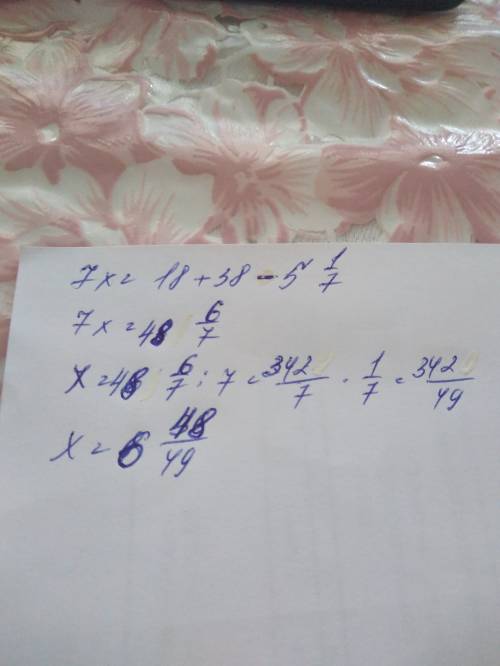 7x = 18 + 38 - 5 1/7
7x = 48 6/7
x = 48 6/7 : 7 = 342/7 · 1/7 = 342/49
x = 6 48/49